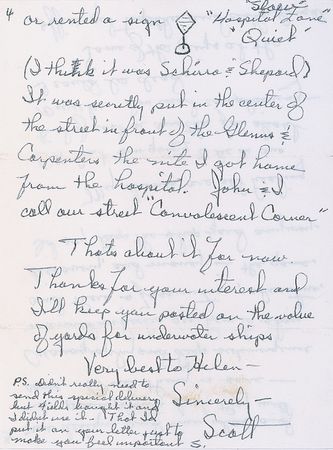 4
"Slow"
or rented a sign "Hospital Zone"
"Quiet"
(I think it was Schirra & Shepard)
It was secretly put in the center of
the street in front of the Glenns &
Carpenters the nite I got home
from the hospital. John & I
call our street "Convalescent Corner"
Thats about it for now.
Thanks for your interest and
I'll keep you posted on the value
of yards for underwater ships
Very best to Helen —
Sincerely —
Scott
P.S. Didn't really need to
send this special delivery
but Fields bought it and
I didn't use it. Thot I'd
put it on your letter just to
make you feel important S.